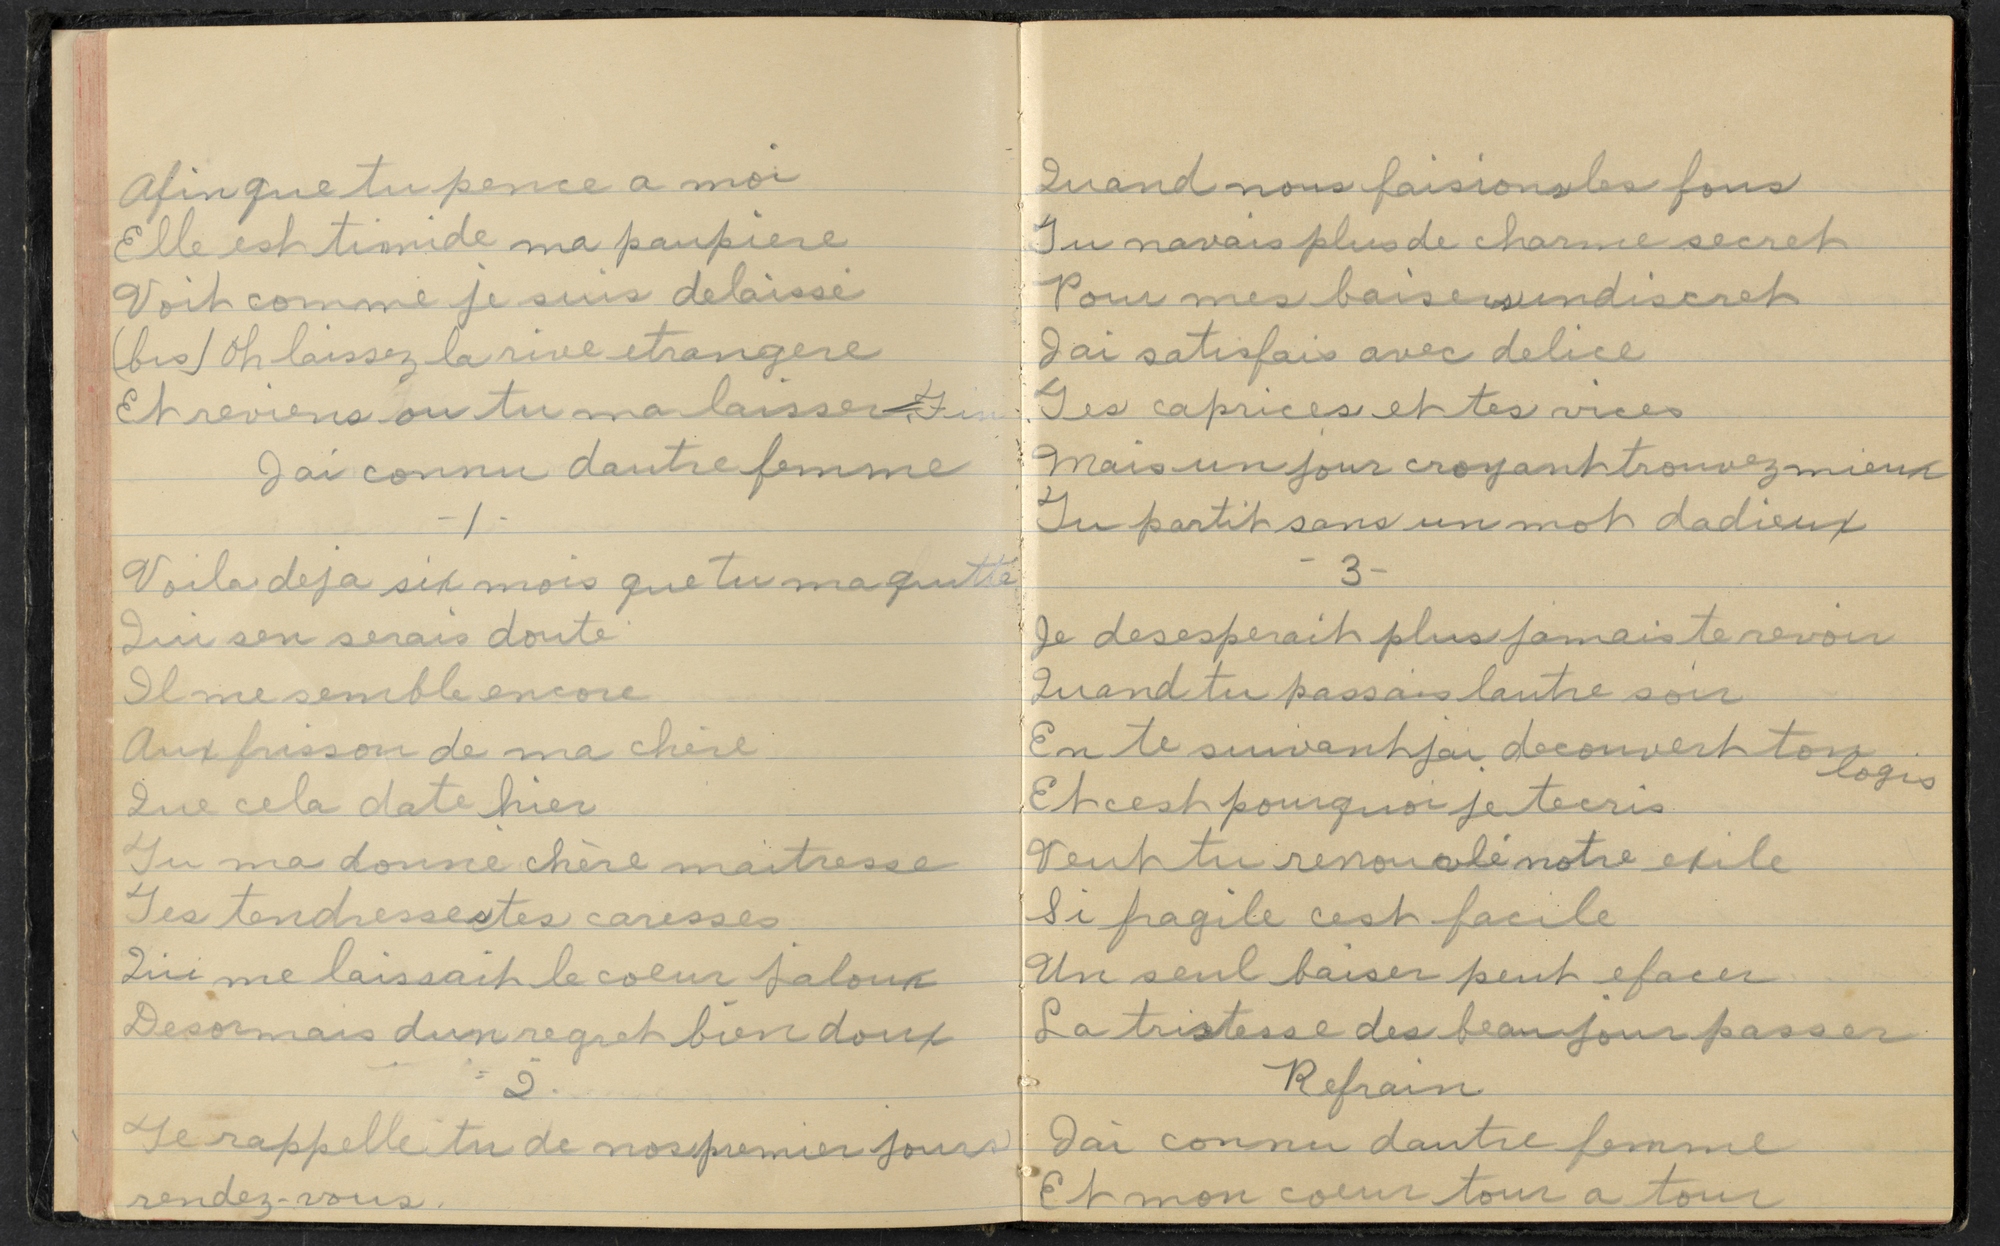 Afin que tu pence a moi
Elle est timide ma paupiere
Voit comme je suis delaissé
(bis) Oh laissez la rive etrangere
Et reviens ou tu ma laisser Fin.
Jai connu dautre femme
-1-
Voila deja six mois que tu ma quitté
Qui sen serais douté
Il me semble encore
Aux frisson de ma chère
Que cela date hier
Tu ma donné chère maitresse
Tes tendresses tes caresses
Qui me laissait le coeur jaloux
Desormais dun regret bien doux
-2-
Te rappelle tu de nos premier jours
rendez-vous.
Quand nous faisions les fous
Tu navais plus de charme secret
Pour mes baisers undiscret
Jai satisfais avec delice
Tes caprices et tes vices
Mais un jour croyant trouvez mieux
Tu partit sans un mot dadieux
-3-
Je desesperait plus jamais te revoir
Quand tu passais lautre soir
En te suivant jai decouvert ton
logis
Et cest pourquoi je tecris
Veut tu renouvlé notre exile
Si fragile cest facile
Un seul baiser peut efacer
La tristesse des beau jour passer
Refrain
Jai connu dautre femme
Et mon coeur tour a tour